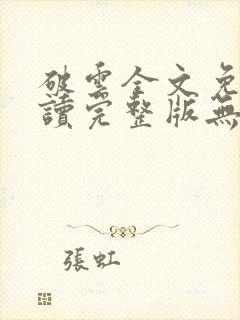 破雲全文免
讀完整版無
張虹